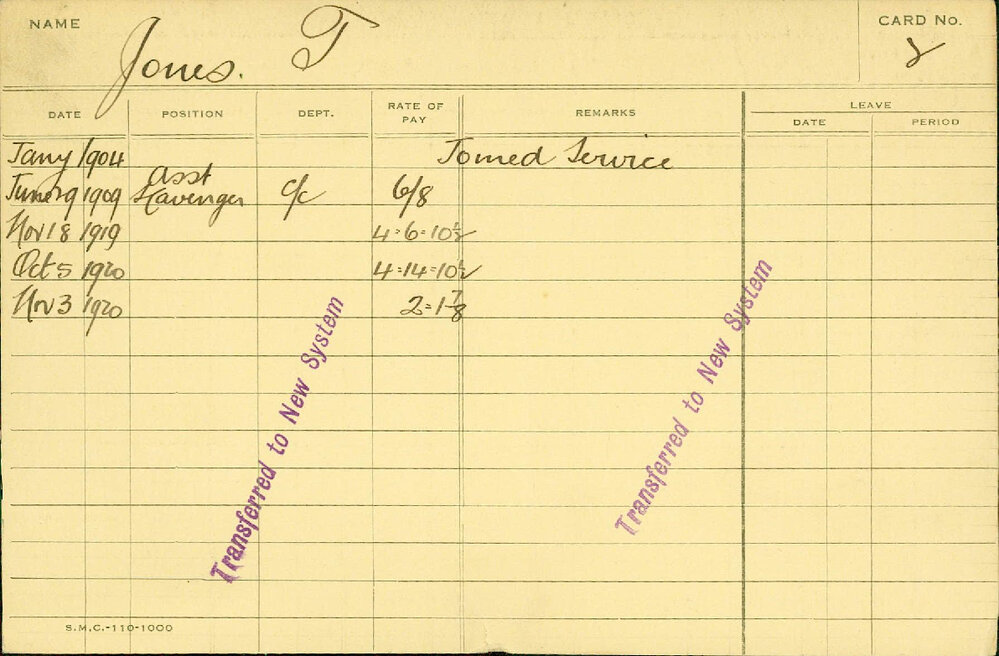 NAME Jones. T CARD No.
DATE POSITION DEPT. RATE OF PAY REMARKS LEAVE
DATE PERIOD
Jany 1904 Joined Service
June 29 1909 Asst Scavenger C/c 6/8
Nov 18 1919 4=6=10½
Oct 5 1920 4=14=10½
Nov 3 1920 2=1⅞
Transferred to New System
Transferred to New System
S.M.C.-110-1000